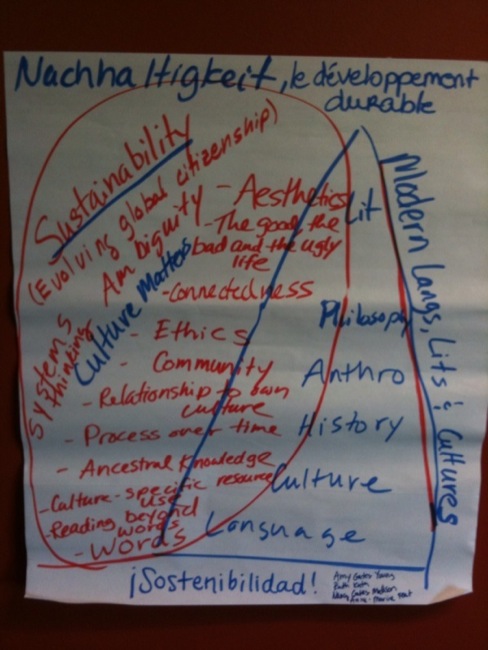 Nachhaltigkeit, le développement
durable
Sustainability
(Evolving global citizenship)
Ambiguity
Culture Matters
Systems
thinking
- Aesthetics
- The good, the
bad and the ugly
life
- Connectedness
- Ethics
- Community
- Relationship to own
culture
- Process over time
- Ancestral Knowledge
- Culture-specific resource
use
- Reading beyond
words
- Words
Lit
Philosophy
Anthro
History
Culture
Language
Modern Langs, Lits & Cultures
¡Sostenibilidad!
Amy
Ruth